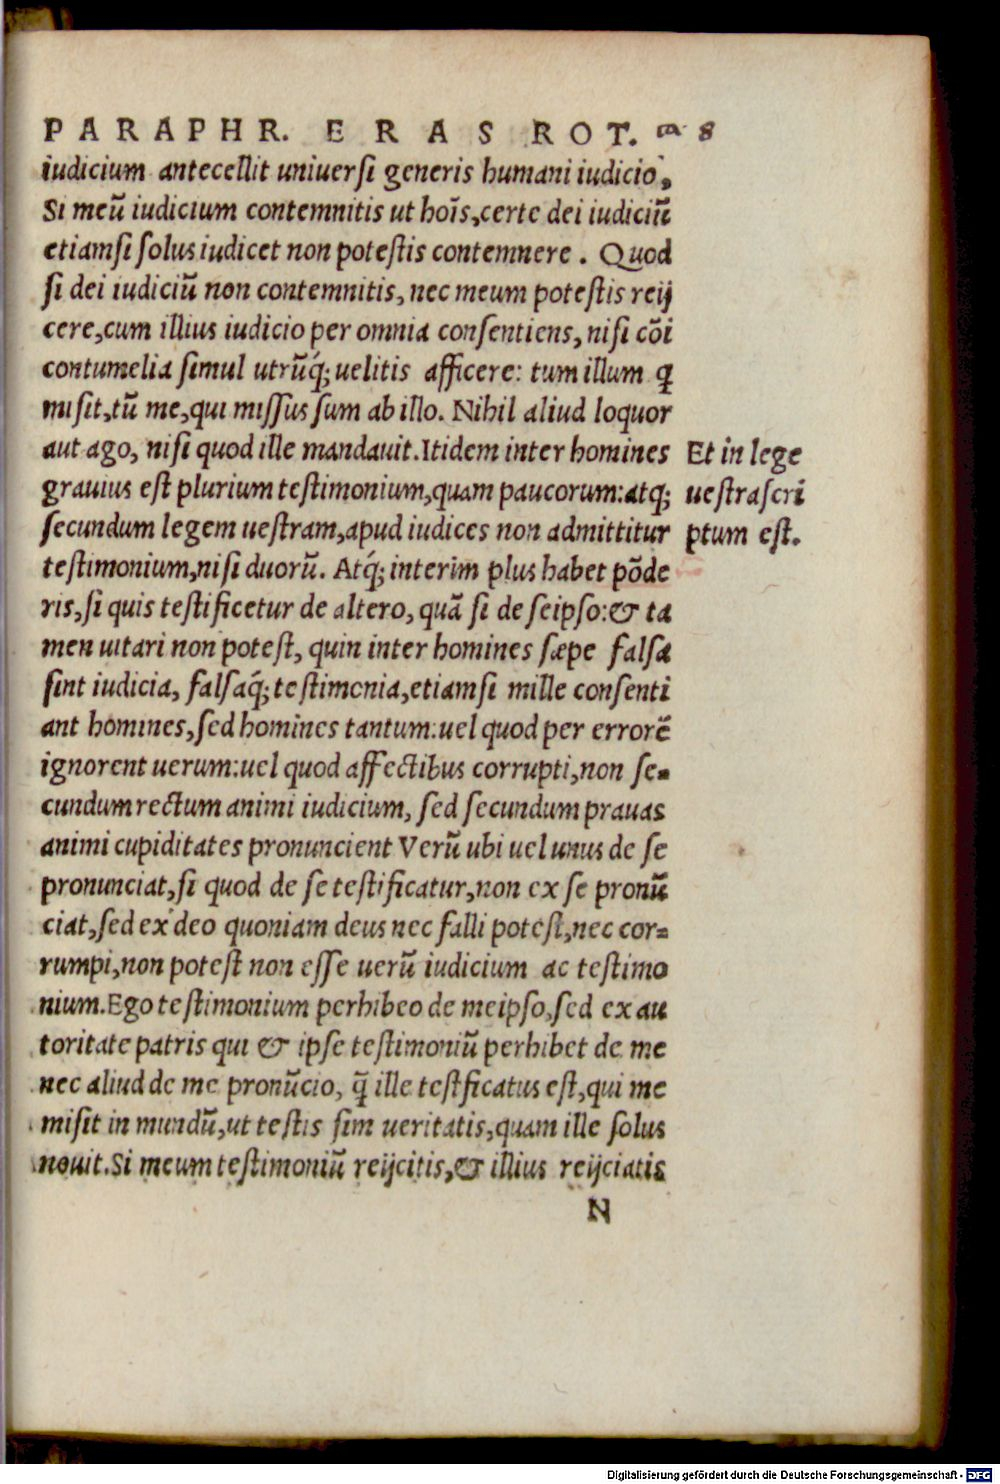 PARAPHR. ERAS ROT. ca 8
iudicium antecellit uniuersi generis humani iudicio,
Si meū iudicium contemnitis ut hoīs, certe dei iudiciū
etiamsi solus iudicet non potestis contemnere . Quod
si dei iudiciū non contemnitis, nec meum potestis reij
cere, cum illius iudicio per omnia consentiens, nisi cōi
contumelia simul utrūq́; uelitis afficere: tum illum q̄
misit, tū me, qui missus sum ab illo. Nihil aliud loquor
aut ago, nisi quod ille mandauit. Itidem inter homines
grauius est plurium testimonium, quam paucorum: atq;
secundum legem uestram, apud iudices non admittitur
testimonium, nisi duorū. Atq́; interim plus habet pōde
ris, si quis testificetur de altero, quā si de seipso: & ta
men uitari non potest, quin inter homines sæpe falsa
sint iudicia, falsaq́; testimonia, etiamsi mille consenti
ant homines, sed homines tantum: uel quod per errorē
ignorent uerum: uel quod affectibus corrupti, non se-
cundum rectum animi iudicium, sed secundum prauas
animi cupiditates pronuncient Verū ubi uel unus de se
pronunciat, si quod de se testificatur, non ex se pronū
ciat, sed ex deo quoniam deus nec falli potest, nec cor-
rumpi, non potest non esse uerū iudicium ac testimo
nium. Ego testimonium perhibeo de meipso, sed ex au
toritate patris qui & ipse testimoniū perhibet de me
nec aliud de me pronūcio, q̄ ille testficatus est, qui me
misit in mundū, ut testis sim ueritatis, quam ille solus
nouit. Si meum testimoniū reijcitis, & illius reijciatis
N
Et in lege
uestra scri
ptum est.
Digitalisierung gefördert durch die Deutsche Forschungsgemeinschaft - DFG